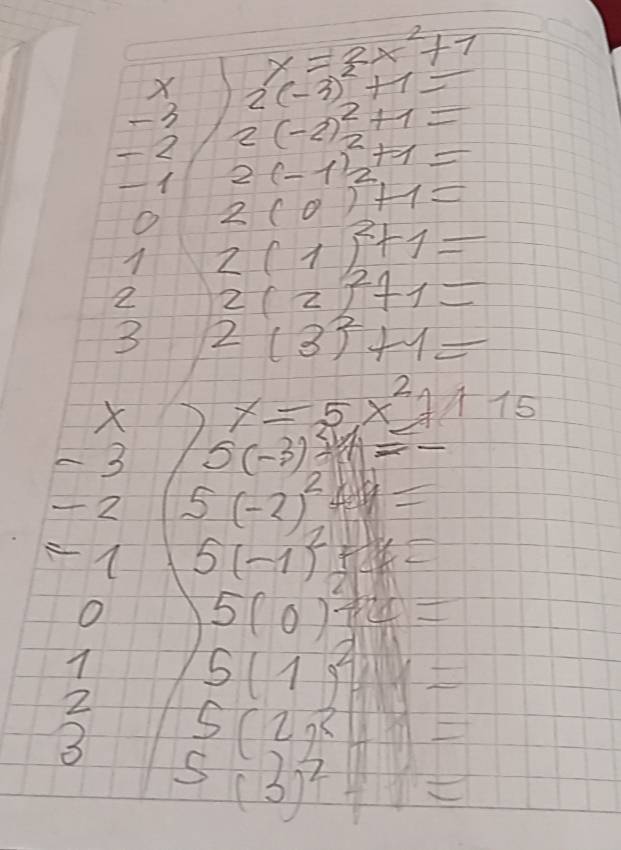 x ) x = 2x²+1
-3 2(-3)²+1=
-2 2(-2)²+1=
-1 2(-1)²+1=
0 2(0)²+1=
1 2(1)²+1=
2 2(2)²+1=
3 2(3)²+1=
x ) x = 5x² 15
-3 5(-3)² =-
-2 5(-2)² =
-1 5(-1)² =
0 5(0)² =
1 5(1)² =
2 5(2)² =
3 5(3)² =